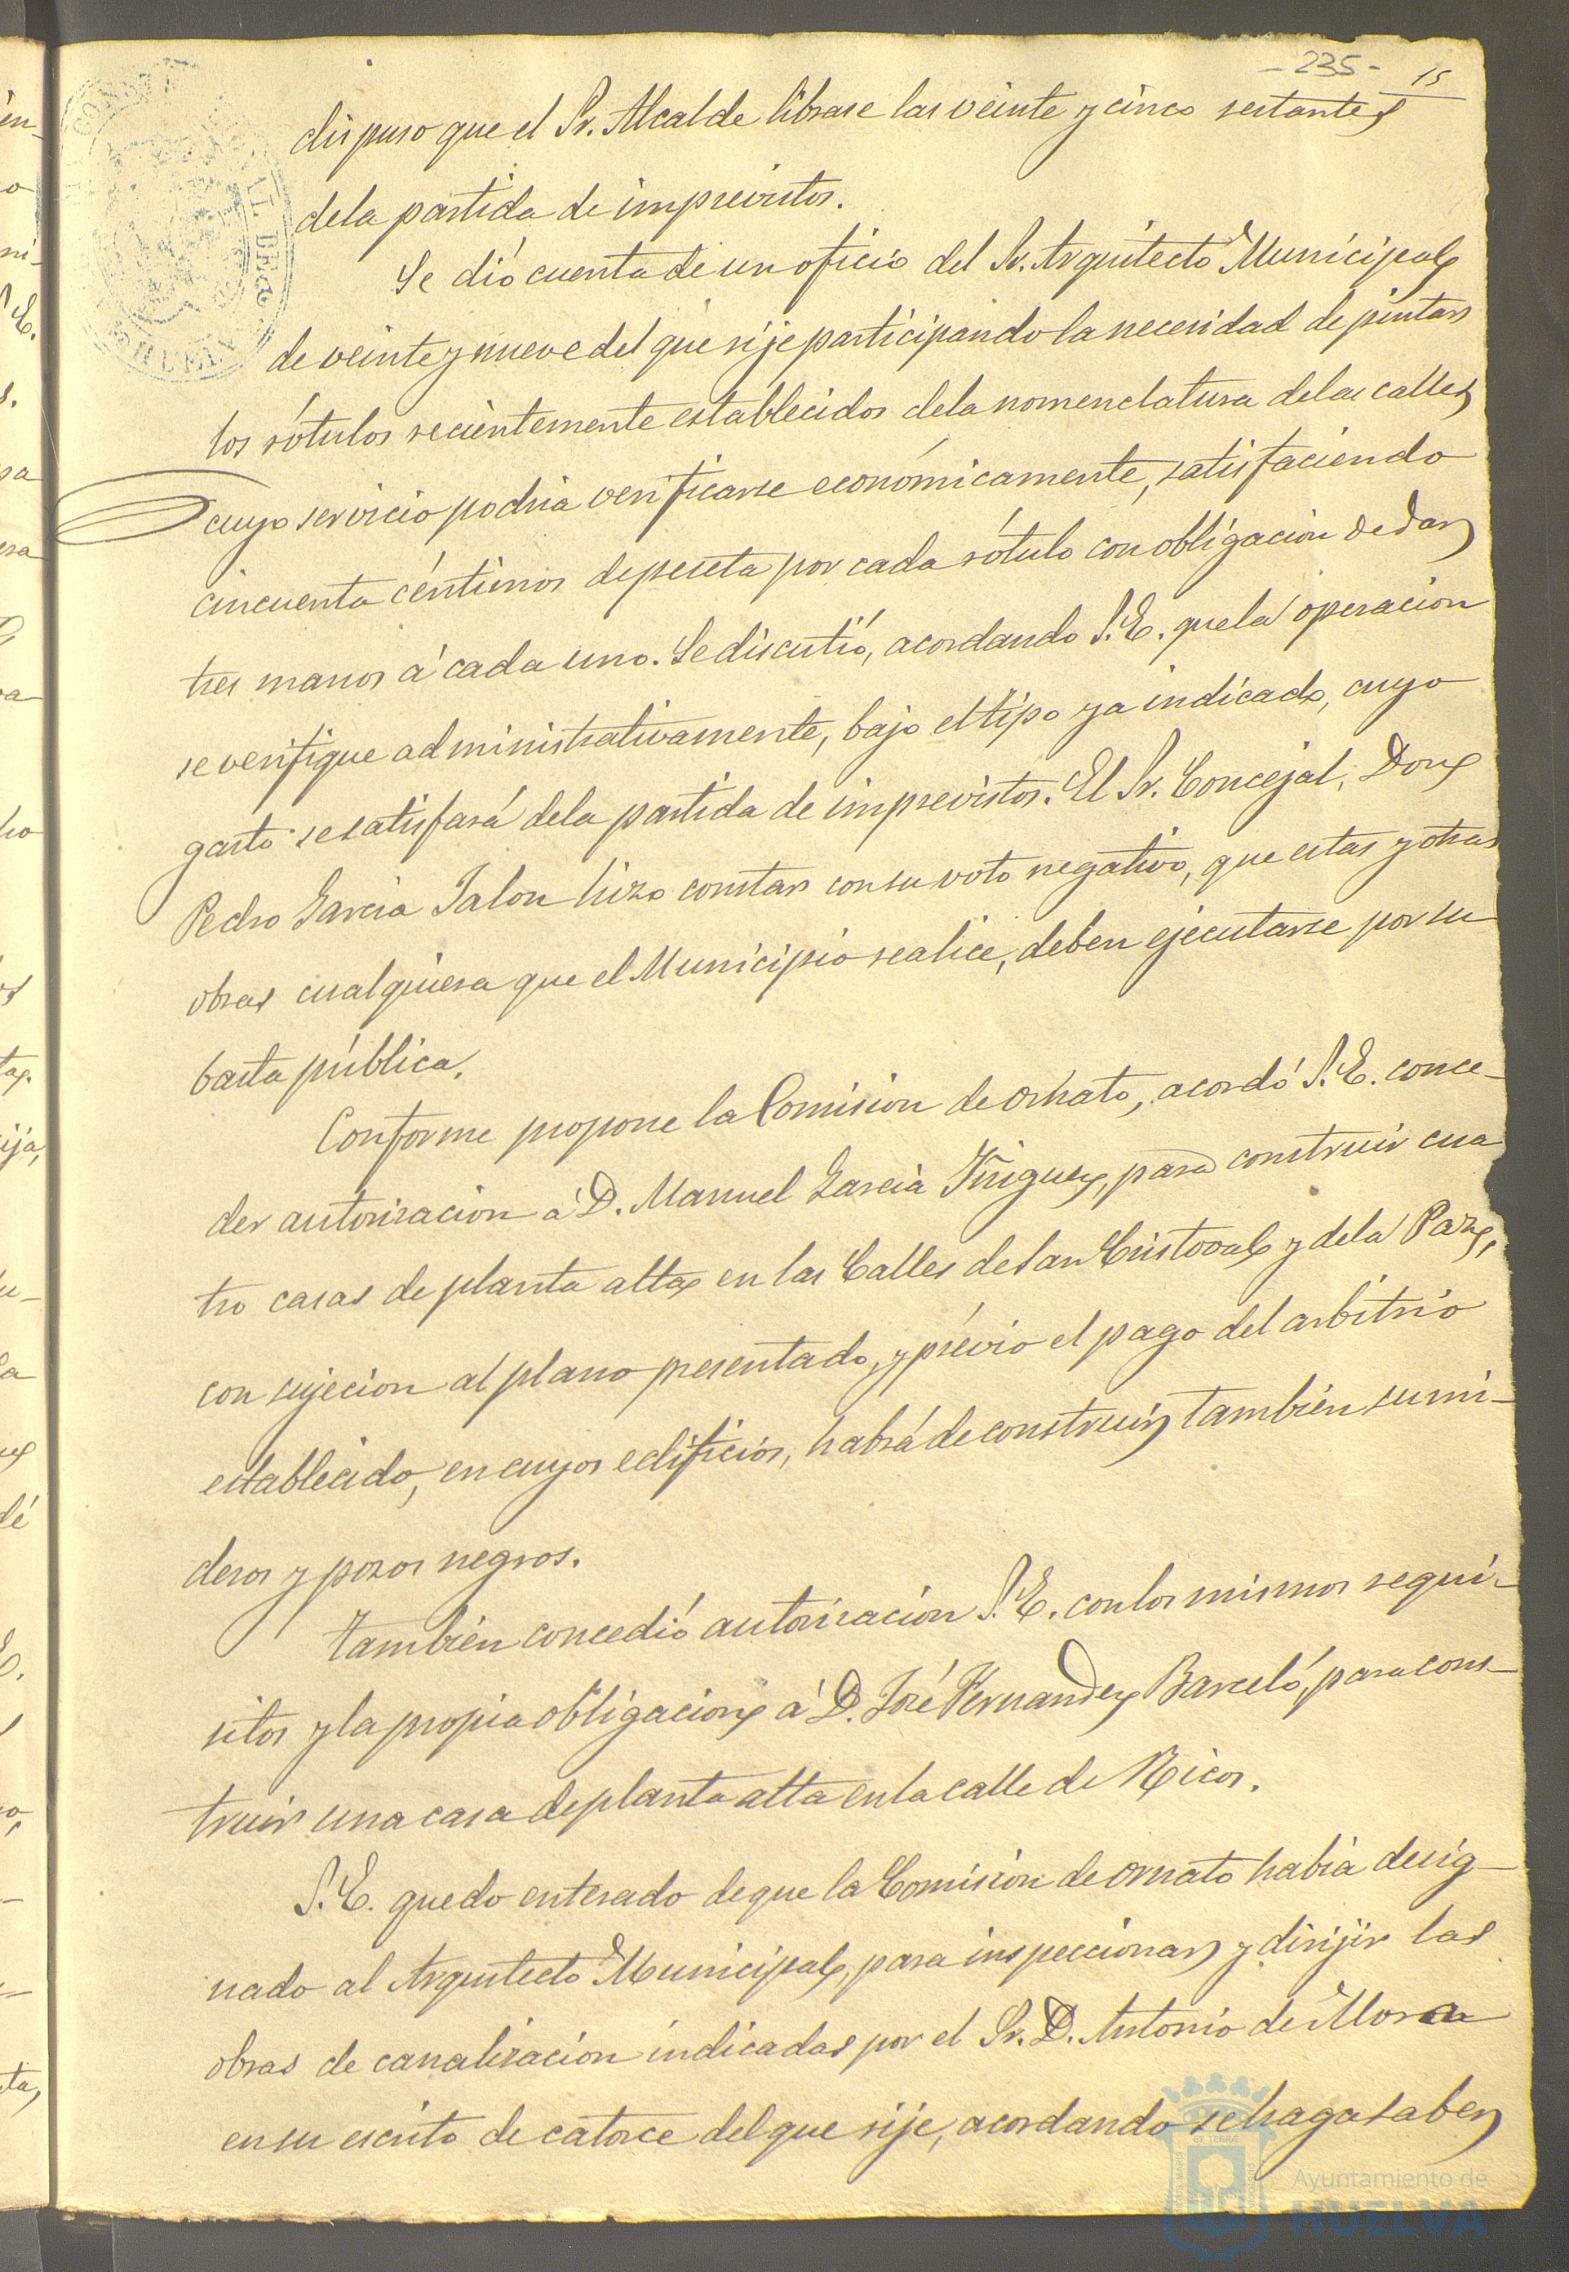 - 235 -
15
dispuso que el Sr. Alcalde librase las veinte y cinco restantes
dela partida de imprevistos.
Se dió cuenta de un oficio del Sr. Arquitecto Municipal
de veinte y nueve del que rije participando la necesidad de pintar
los rótulos recientemente establecidos dela nomenclatura delas calles
cuyo servicio podria verificarse económicamente, satisfaciendo
cincuenta céntimos de peseta por cada rótulo con obligacion de dar
tres manos á cada uno. Se discutió, acordando S.E. que la operacion
se verifique administrativamente, bajo el tipo ya indicado, cuyo
gasto se satisfará dela partida de imprevistos. El Sr. Concejal, Don
Pedro Garcia Jalon hizo constar con su voto negativo, que estas y otras
obras cualquiera que el Municipio realice, deben ejecutarse por su
basta pública.
Conforme propone la Comision de ornato, acordó S.E. conce-
der autorizacion á D. Manuel Garcia Yñiguez, para construir cua
tro casas de planta alta en las Calles de San Cristoval y dela Paz,
con sujecion al plano presentado, y prévio el pago del arbitrio
establecido, en cuyos edificios, habrá de construir tambien sumi-
deros y pozos negros.
Tambien concedió autorizacion S.E. con los mismos requi-
sitos y la propia obligacion á D. José Fernandez Barceló, para cons-
truir una casa de planta alta en la calle de Ricos.
S.E. quedo enterado de que la Comision de ornato habia desig-
nado al Arquitecto Municipal, para inspeccionar y dirijir las
obras de canalizacion indicadas por el Sr. D. Antonio de Mora
en su escrito de catorce del que rije, acordando se haga saber
Ayuntamiento de
HUELVA